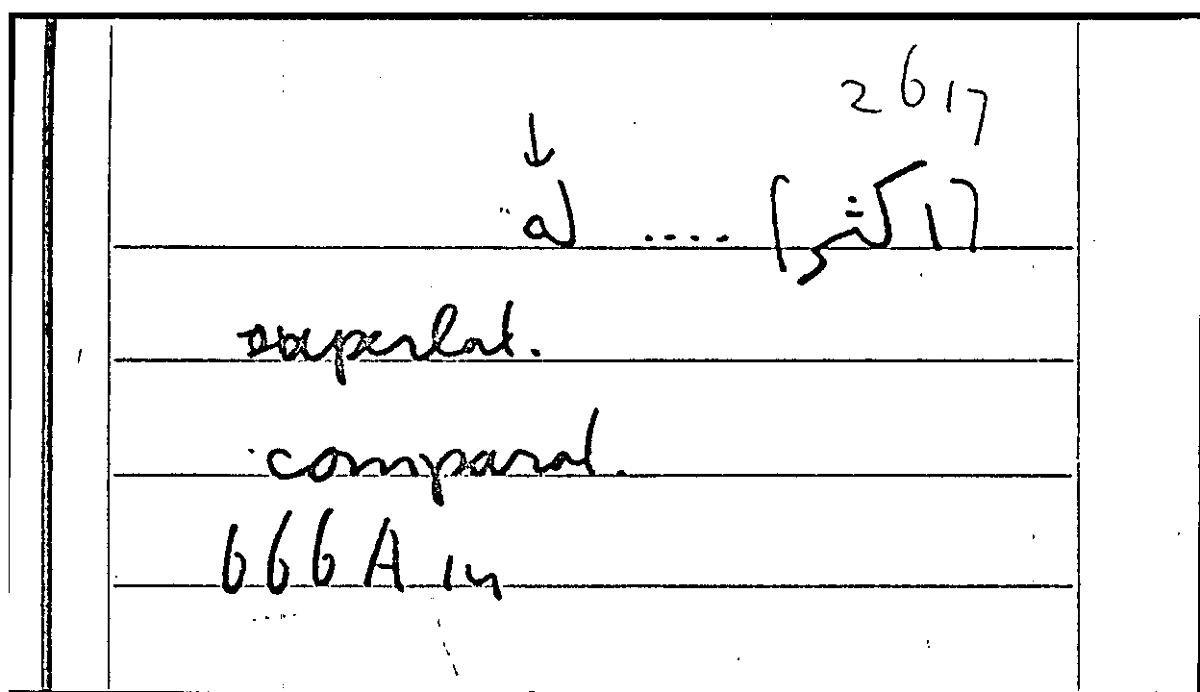 2 6 17
.... 17
superlat.
comparat.
666A 14